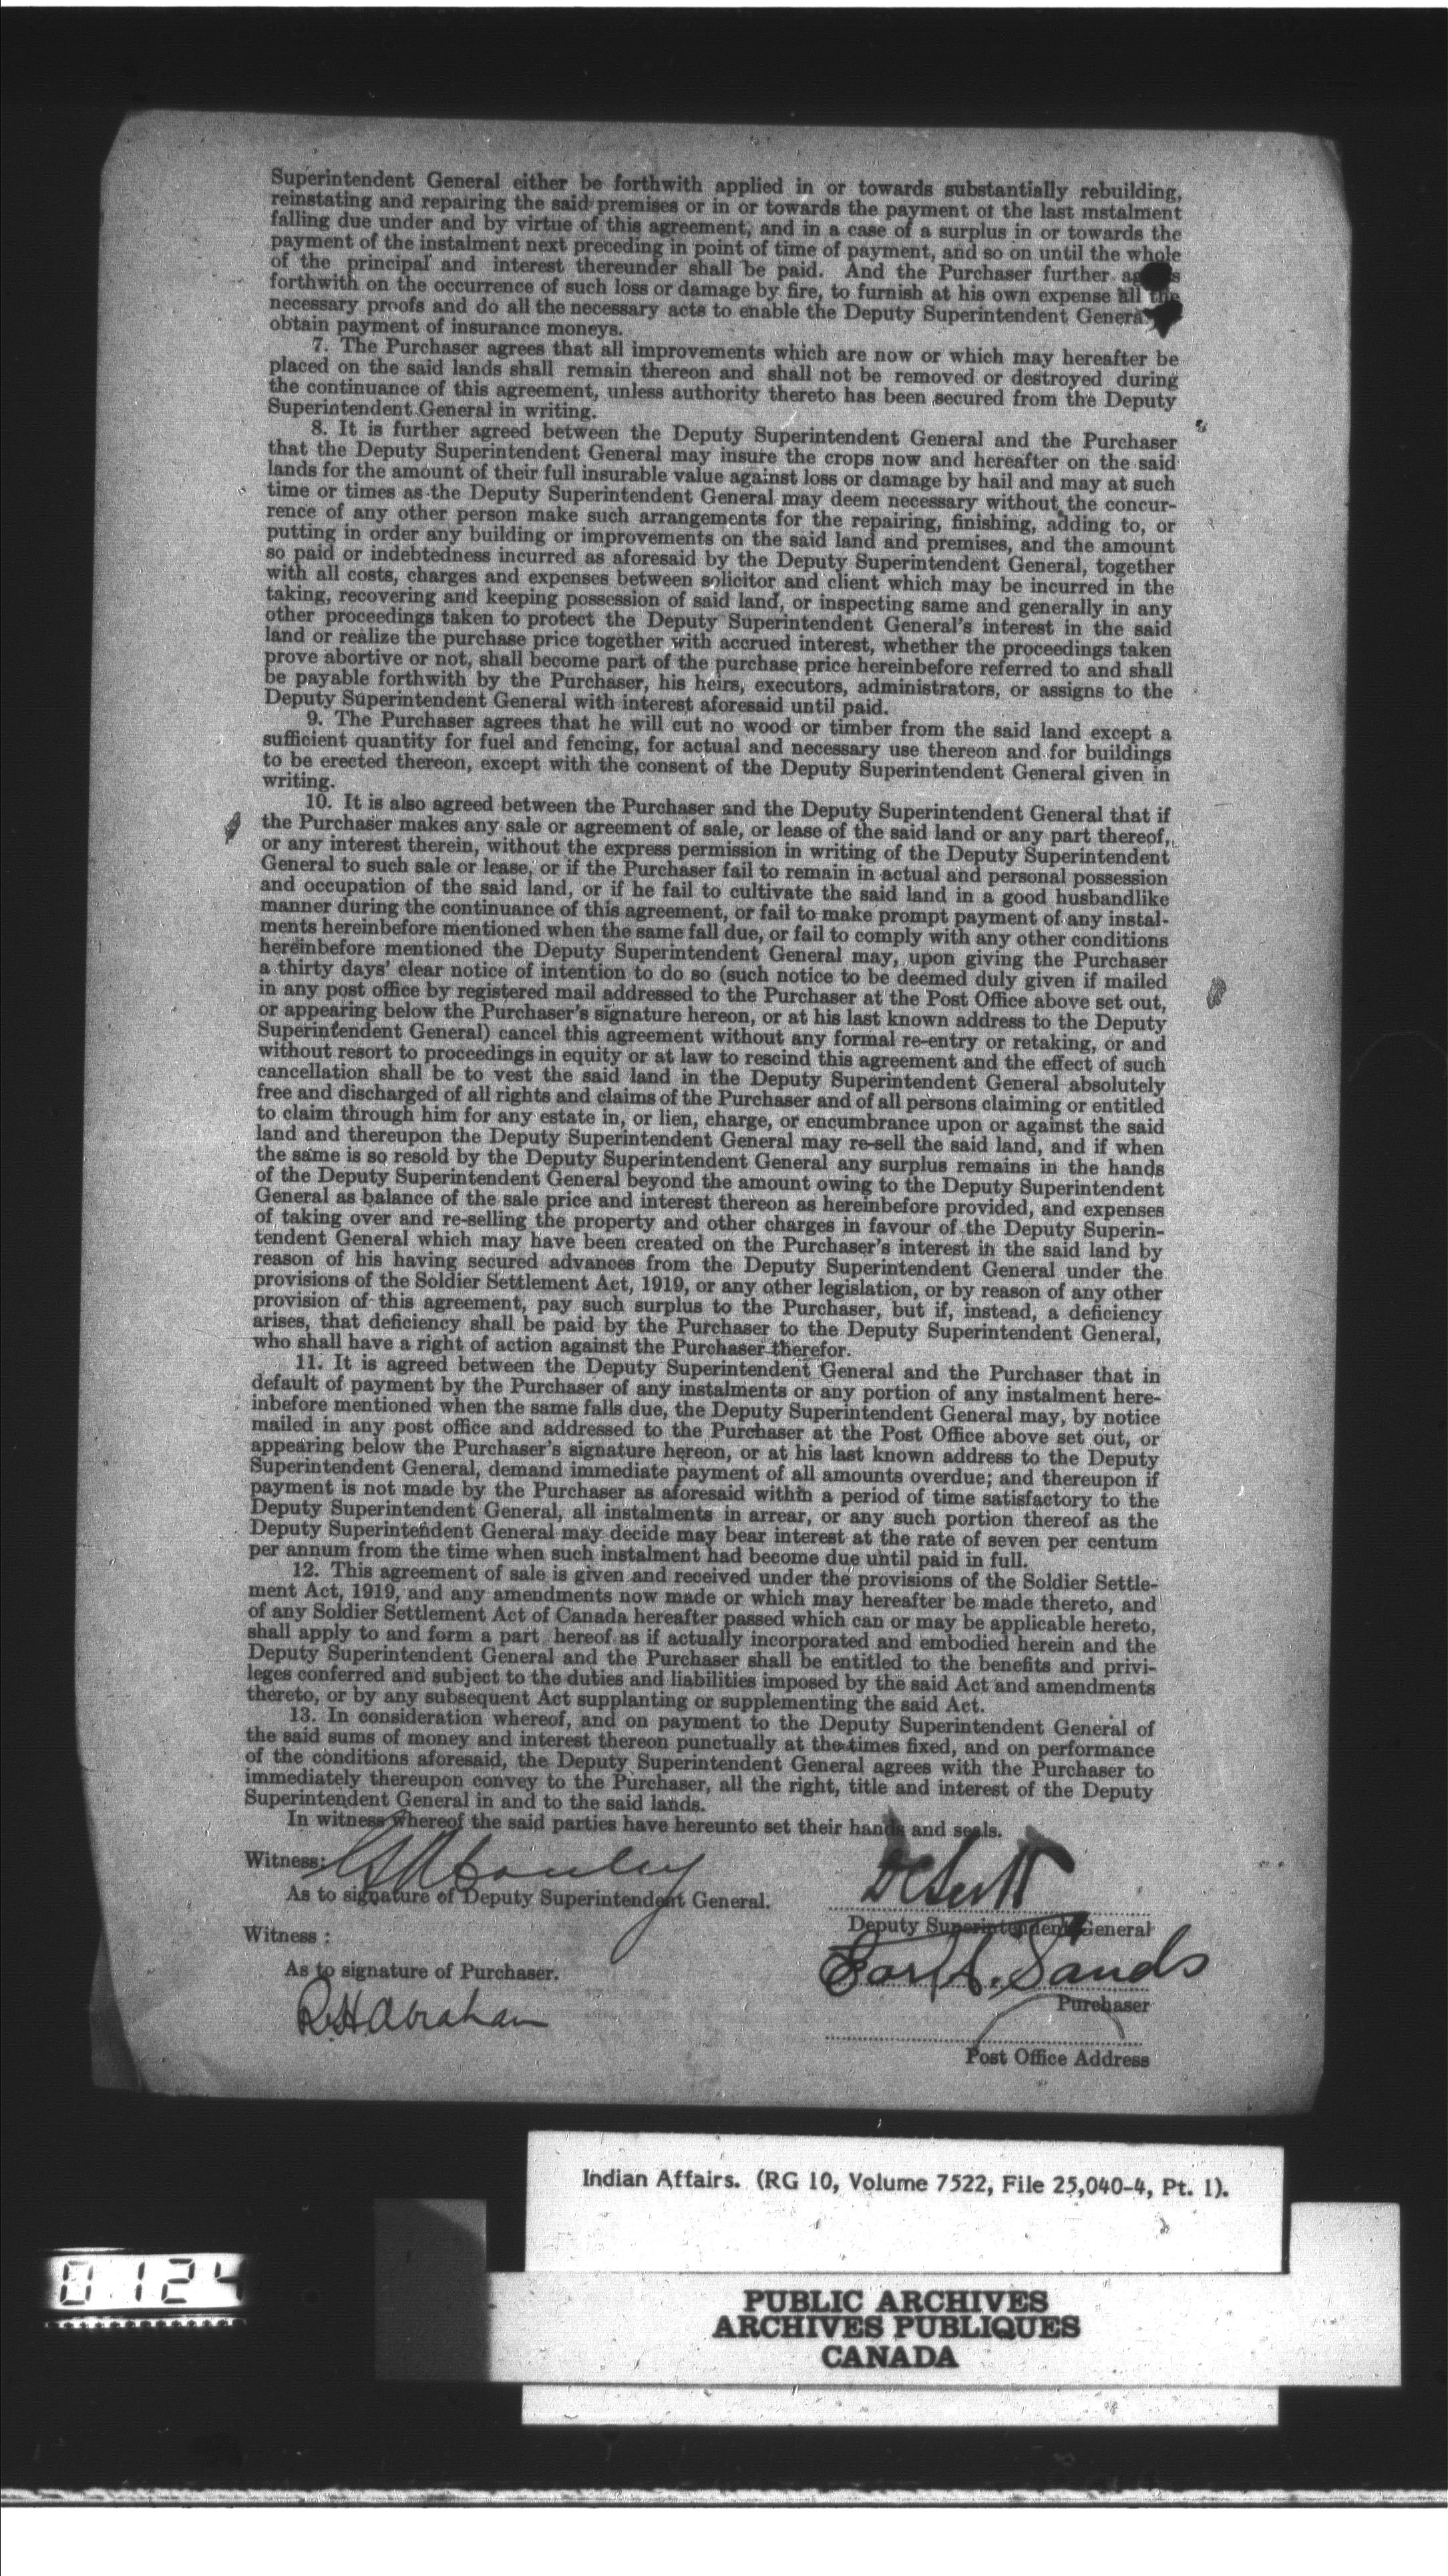 Superintendent General either be forthwith applied in or towards substantially rebuilding,
reinstating and repairing the said premises or in or towards the payment of the last instalment
falling due under and by virtue of this agreement, and in a case of a surplus in or towards the
payment of the instalment next preceding in point of time of payment, and so on until the whole
of the principal and interest thereunder shall be paid. And the Purchaser further
forthwith on the occurrence of such loss or damage by fire, to furnish at his own expense all the
necessary proofs and do all the necessary acts to enable the Deputy Superintendent General
obtain payment of insurance moneys.
7. The Purchaser agrees that all improvements which are now or which may hereafter be
placed on the said lands shall remain thereon and shall not be removed or destroyed during
the continuance of this agreement, unless authority thereto has been secured from the Deputy
Superintendent General in writing.
8. It is further agreed between the Deputy Superintendent General and the Purchaser
that the Deputy Superintendent General may insure the crops now and hereafter on the said
lands for the amount of their full insurable value against loss or damage by hail and may at such
time or times as the Deputy Superintendent General may deem necessary without the concur-
rence of any other person make such arrangements for the repairing, finishing, adding to, or
putting in order any building or improvements on the said land and premises, and the amount
so paid or indebtedness incurred as aforesaid by the Deputy Superintendent General, together
with all costs, charges and expenses between solicitor and client which may be incurred in the
taking, recovering and keeping possession of said land, or inspecting same and generally in any
other proceedings taken to protect the Deputy Superintendent General's interest in the said
land or realize the purchase price together with accrued interest, whether the proceedings taken
prove abortive or not, shall become part of the purchase price hereinbefore referred to and shall
be payable forthwith by the Purchaser, his heirs, executors, administrators, or assigns to the
Deputy Superintendent General with interest aforesaid until paid.
9. The Purchaser agrees that he will cut no wood or timber from the said land except a
sufficient quantity for fuel and fencing, for actual and necessary use thereon and for buildings
to be erected thereon, except with the consent of the Deputy Superintendent General given in
writing.
10. It is also agreed between the Purchaser and the Deputy Superintendent General that if
the Purchaser makes any sale or agreement of sale, or lease of the said land or any part thereof,
or any interest therein, without the express permission in writing of the Deputy Superintendent
General to such sale or lease, or if the Purchaser fail to remain in actual and personal possession
and occupation of the said land, or if he fail to cultivate the said land in a good husbandlike
manner during the continuance of this agreement, or fail to make prompt payment of any instal-
ments hereinbefore mentioned when the same fall due, or fail to comply with any other conditions
hereinbefore mentioned the Deputy Superintendent General may, upon giving the Purchaser
a thirty days' clear notice of intention to do so (such notice to be deemed duly given if mailed
in any post office by registered mail addressed to the Purchaser at the Post Office above set out,
or appearing below the Purchaser's signature hereon, or at his last known address to the Deputy
Superintendent General) cancel this agreement without any formal re-entry or retaking, or and
without resort to proceedings in equity or at law to rescind this agreement and the effect of such
cancellation shall be to vest the said land in the Deputy Superintendent General absolutely
free and discharged of all rights and claims of the Purchaser and of all persons claiming or entitled
to claim through him for any estate in, or lien, charge, or encumbrance upon or against the said
land and thereupon the Deputy Superintendent General may re-sell the said land, and if when
the same is so resold by the Deputy Superintendent General any surplus remains in the hands
of the Deputy Superintendent General beyond the amount owing to the Deputy Superintendent
General as balance of the sale price and interest thereon as hereinbefore provided, and expenses
of taking over and re-selling the property and other charges in favour of the Deputy Superin-
tendent General which may have been created on the Purchaser's interest in the said land by
reason of his having secured advances from the Deputy Superintendent General under the
provisions of the Soldier Settlement Act, 1919, or any other legislation, or by reason of any other
provision of this agreement, pay such surplus to the Purchaser, but if, instead, a deficiency
arises, that deficiency shall be paid by the Purchaser to the Deputy Superintendent General,
who shall have a right of action against the Purchaser therefor.
11. It is agreed between the Deputy Superintendent General and the Purchaser that in
default of payment by the Purchaser of any instalments or any portion of any instalment here-
inbefore mentioned when the same falls due, the Deputy Superintendent General may, by notice
mailed in any post office and addressed to the Purchaser at the Post Office above set out, or
appearing below the Purchaser's signature hereon, or at his last known address to the Deputy
Superintendent General, demand immediate payment of all amounts overdue; and thereupon if
payment is not made by the Purchaser as aforesaid within a period of time satisfactory to the
Deputy Superintendent General, all instalments in arrear, or any such portion thereof as the
Deputy Superintendent General may decide may bear interest at the rate of seven per centum
per annum from the time when such instalment had become due until paid in full.
12. This agreement of sale is given and received under the provisions of the Soldier Settle-
ment Act, 1919, and any amendments now made or which may hereafter be made thereto, and
of any Soldier Settlement Act of Canada hereafter passed which can or may be applicable hereto,
shall apply to and form a part hereof as if actually incorporated and embodied herein and the
Deputy Superintendent General and the Purchaser shall be entitled to the benefits and privi-
leges conferred and subject to the duties and liabilities imposed by the said Act and amendments
thereto, or by any subsequent Act supplanting or supplementing the said Act.
13. In consideration whereof, and on payment to the Deputy Superintendent General of
the said sums of money and interest thereon punctually at the times fixed, and on performance
of the conditions aforesaid, the Deputy Superintendent General agrees with the Purchaser to
immediately thereupon convey to the Purchaser, all the right, title and interest of the Deputy
Superintendent General in and to the said lands.
In witness whereof the said parties have hereunto set their hands and seals.
Witness:
As to signature of Deputy Superintendent General.
Deputy Superintendent General
Witness :
Sands
As to signature of Purchaser.
Purchaser
R.H. Abraham
Post Office Address
Indian Affairs. (RG 10, Volume 7522, File 25,040-4, Pt. 1).
0124
PUBLIC ARCHIVES
ARCHIVES PUBLIQUES
CANADA